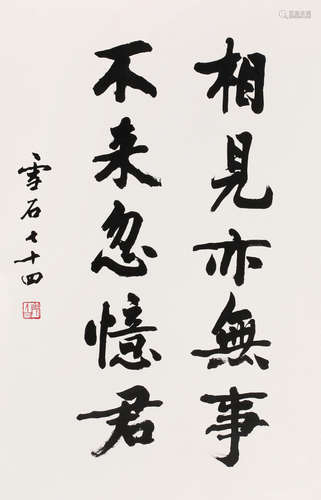 相見亦無事
不来忽憶君
雪石七十四